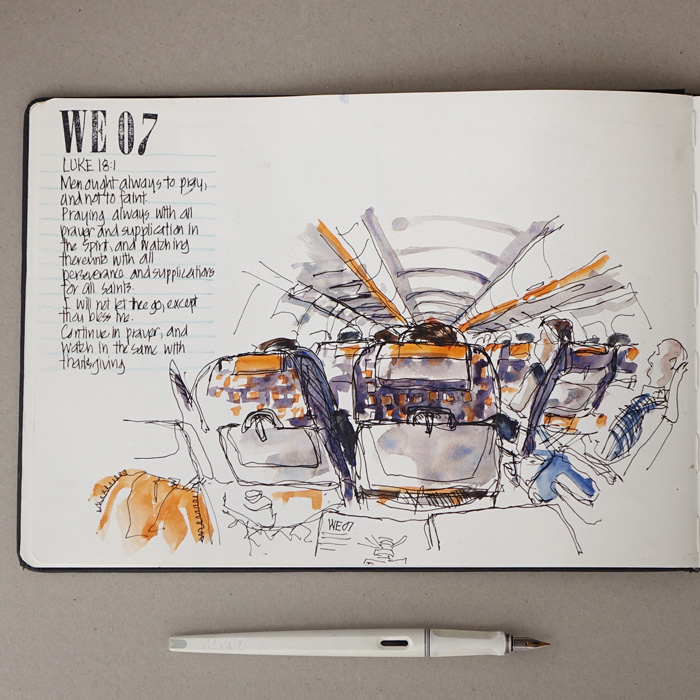 WE 07
LUKE 18:1
Men ought always to pray,
and not to faint.
Praying always with all
prayer and supplication in
the Spirit, and watching
thereunto with all
perseverance and supplications
for all saints.
I will not let thee go, except
thou bless me.
Continue in prayer, and
watch in the same with
thanksgiving
WE 07